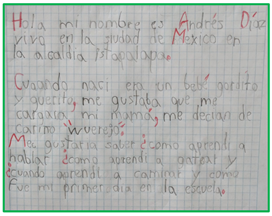 Hola mi nombre es Andrés Díaz
vivo en la ciudad de Mexico en
la alcaldia istapalapa.
Cuando naci era un bebé gordito
y guerito, me gustaba que me
mi mamá, me decian de
cariño "wuerejo".
Me gustaria saber ¿como aprendi a
hablar ¿como aprendi a gatear y
¿cuando aprendi a caminar y como
fue mi primer dia en la escuela.